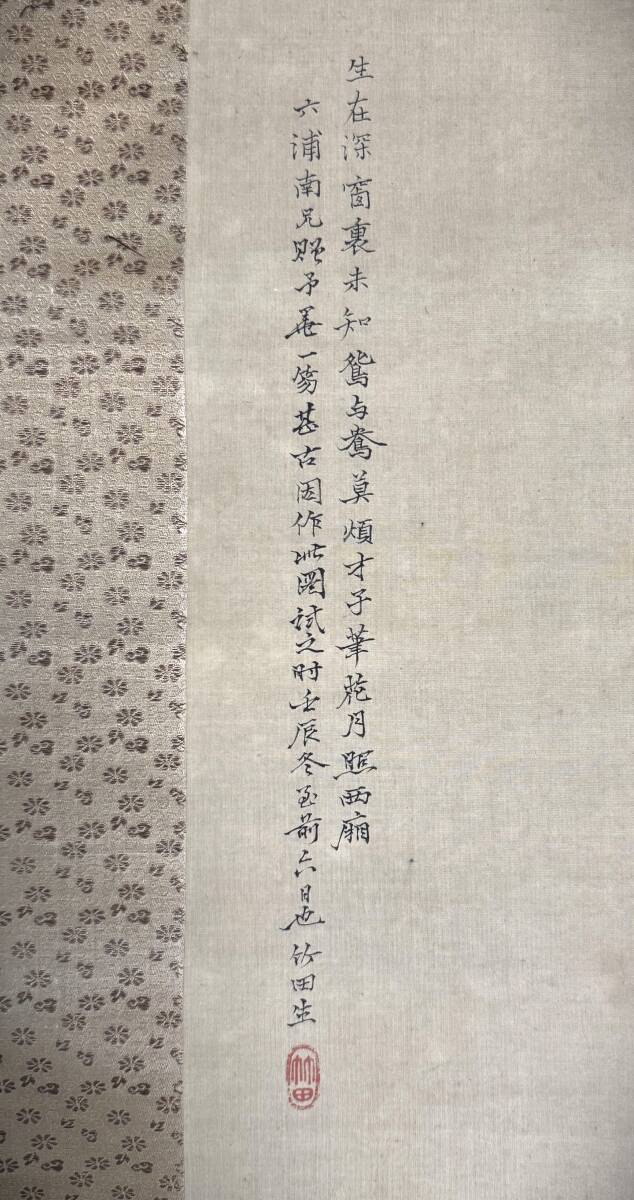 生在深窗裏未知鴛与鴦莫煩才子筆花月照西廂
六浦南兄贈予墨一笏甚古因作此図試之时壬辰冬至前六日也竹田生
竹田